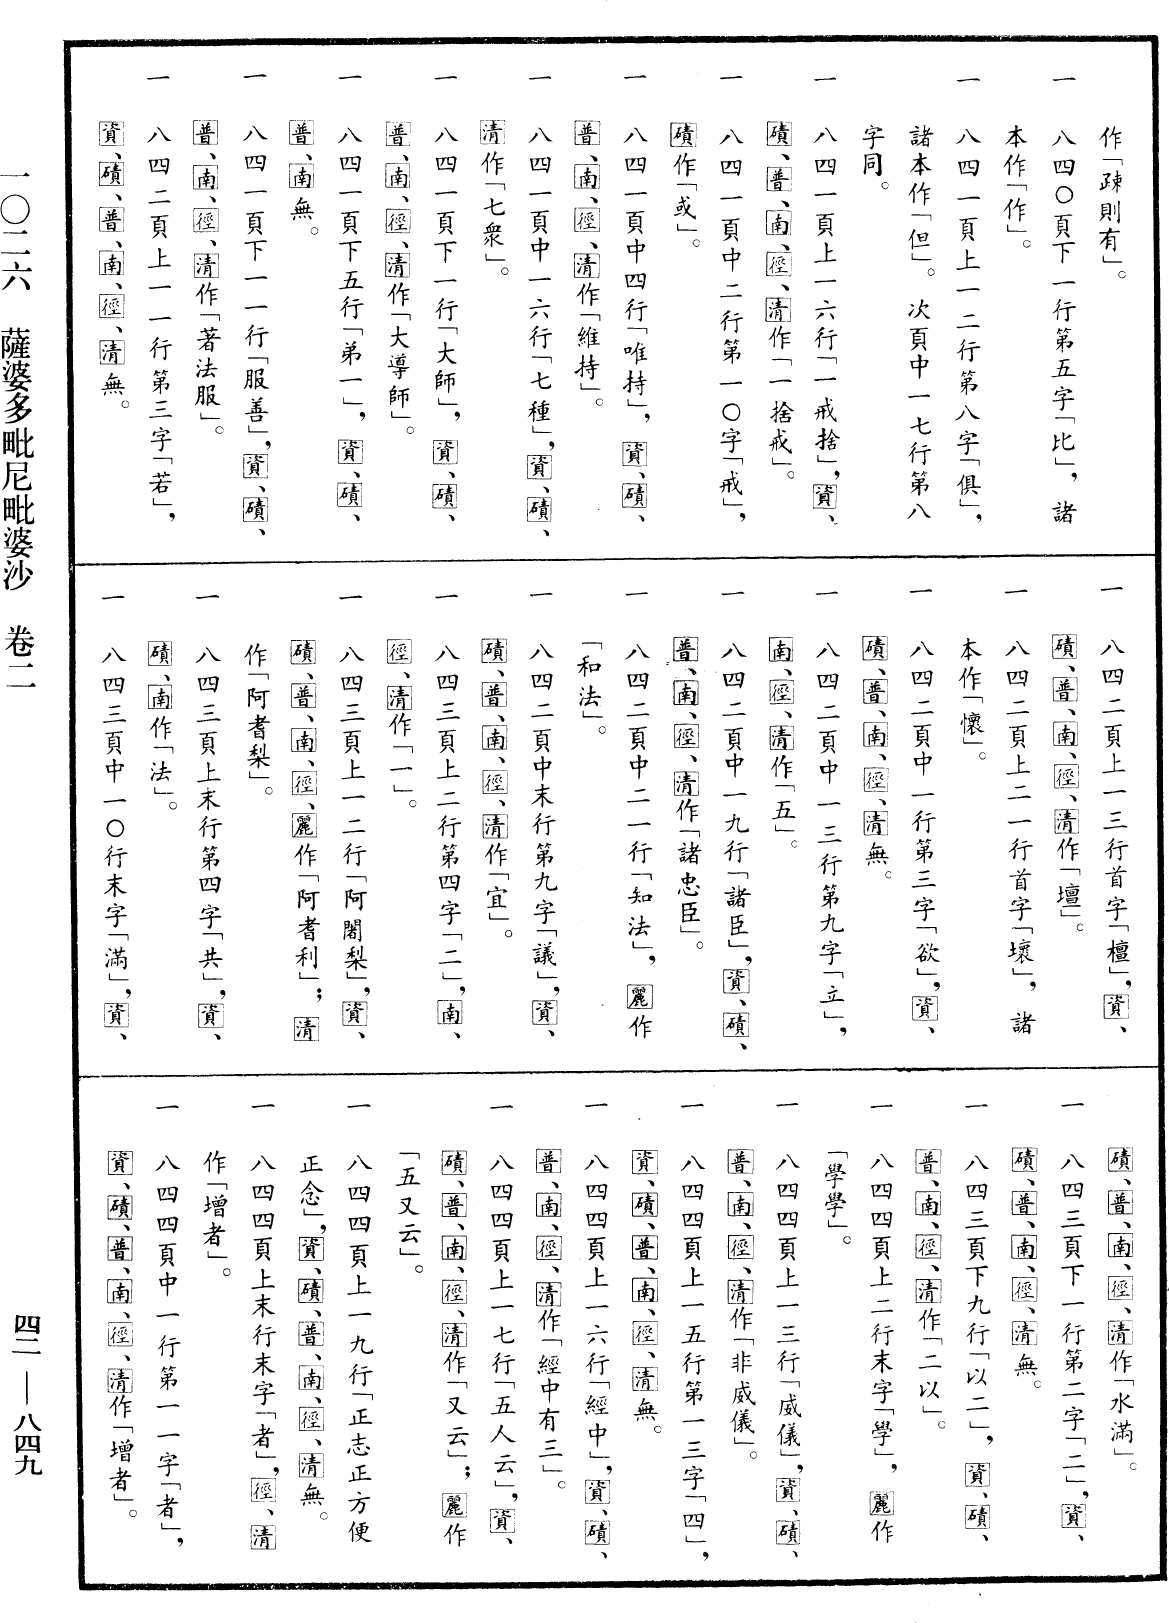 作「疎則有」。
一　八四〇頁下一行第五字「比」，諸
本作「作」。
一　八四一頁上一二行第八字「俱」，
諸本作「但」。次頁中一七行第八
字同。
一　八四一頁上一六行「一戒捨」，資、
磧、普、南、徑、清作「一捨戒」。
一　八四一頁中二行第一〇字「戒」，
磧作「或」。
一　八四一頁中四行「唯持」，資、磧、
普、南、徑、清作「維持」。
一　八四一頁中一六行「七種」，資、磧、
清作「七衆」。
一　八四一頁下一行「大師」，資、磧、
普、南、徑、清作「大導師」。
一　八四一頁下五行「弟一」，資、磧、
普、南無。
一　八四一頁下一一行「服善」，資、磧、
普、南、徑、清作「著法服」。
一　八四二頁上一一行第三字「若」，
資、磧、普、南、徑、清無。
一　八四二頁上一三行首字「檀」，資、
磧、普、南、徑、清作「壇」。
一　八四二頁上二一行首字「壞」，諸
本作「懷」。
一　八四二頁中一行第三字「欲」，資、
磧、普、南、徑、清無。
一　八四二頁中一三行第九字「立」，
南、徑、清作「五」。
一　八四二頁中一九行「諸臣」，資、磧、
普、南、徑、清作「諸忠臣」。
一　八四二頁中二一行「知法」，麗作
「和法」。
一　八四二頁中末行第九字「議」，資、
磧、普、南、徑、清作「宜」。
一　八四三頁上二行第四字「二」，南、
徑、清作「一」。
一　八四三頁上一二行「阿闍梨」，資、
磧、普、南、徑、麗作「阿耆利」；清
作「阿耆梨」。
一　八四三頁上末行第四字「共」，資、
磧、南作「法」。
一　八四三頁中一〇行末字「滿」，資、
磧、普、南、徑、清作「水滿」。
一　八四三頁下一行第二字「二」，資、
磧、普、南、徑、清無。
一　八四三頁下九行「以二」，資、磧、
普、南、徑、清作「二以」。
一　八四四頁上二行末字「學」，麗作
「學學」。
一　八四四頁上一三行「威儀」，資、磧、
普、南、徑、清作「非威儀」。
一　八四四頁上一五行第一三字「四」，
資、磧、普、南、徑、清無。
一　八四四頁上一六行「經中」，資、磧、
普、南、徑、清作「經中有三」。
一　八四四頁上一七行「五人云」，資、
磧、普、南、徑、清作「又云」；麗作
「五又云」。
一　八四四頁上一九行「正志正方便
正念」，資、磧、普、南、徑、清無。
一　八四四頁上末行末字「者」，徑、清
作「增者」。
一　八四四頁中一行第一一字「者」，
資、磧、普、南、徑、清作「增者」。
一〇二六　薩婆多毗尼毗婆沙　卷二
四二—八四九